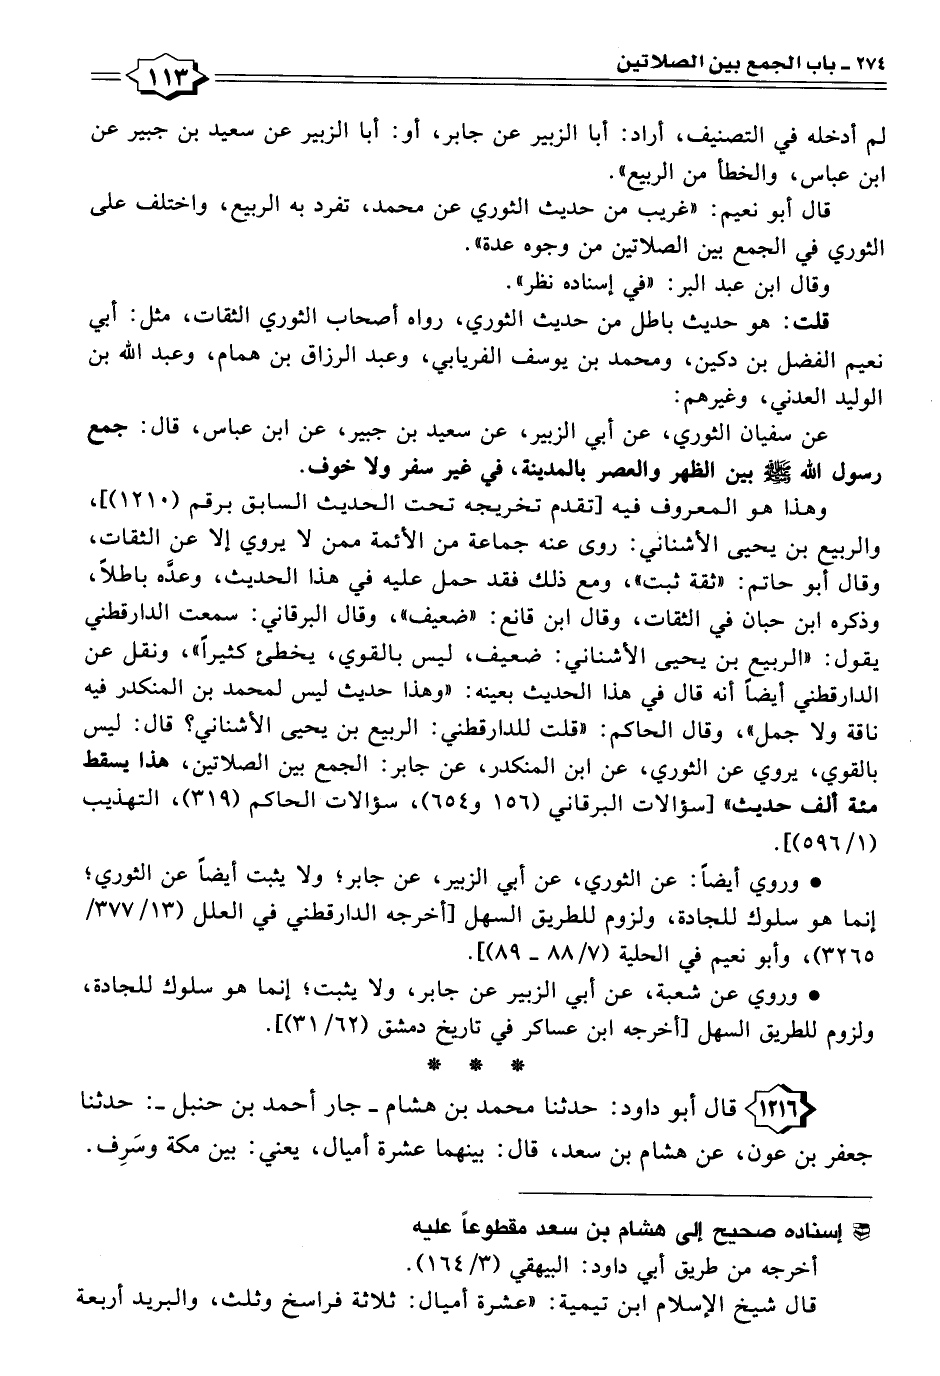 ٢٧٤ ـ باب الجمع بين الصلاتين
١١٣
لم أدخله في التصنيف، أراد: أبا الزبير عن جابر، أو: أبا الزبير عن سعيد بن جبير عن
ابن عباس، والخطأ من الربيع».
قال أبو نعيم: «غريب من حديث الثوري عن محمد، تفرد به الربيع، واختلف على
الثوري في الجمع بين الصلاتين من وجوه عدة».
وقال ابن عبد البر: «في إسناده نظر».
قلت: هو حديث باطل من حديث الثوري، رواه أصحاب الثوري الثقات، مثل: أبي
نعيم الفضل بن دكين، ومحمد بن يوسف الفريابي، وعبد الرزاق بن همام، وعبد الله بن
الوليد العدني، وغيرهم:
عن سفيان الثوري، عن أبي الزبير، عن سعيد بن جبير، عن ابن عباس، قال: جمع
رسول الله ﷺ بين الظهر والعصر بالمدينة، في غير سفر ولا خوف.
وهذا هو المعروف فيه [تقدم تخريجه تحت الحديث السابق برقم (١٢١٠)]،
والربيع بن يحيى الأشناني: روى عنه جماعة من الأئمة ممن لا يروي إلا عن الثقات،
وقال أبو حاتم: «ثقة ثبت»، ومع ذلك فقد حمل عليه في هذا الحديث، وعدَّه باطلاً،
وذكره ابن حبان في الثقات، وقال ابن قانع: «ضعيف»، وقال البرقاني: سمعت الدارقطني
يقول: «الربيع بن يحيى الأشناني: ضعيف، ليس بالقوي، يخطئ كثيراً»، ونقل عن
الدارقطني أيضاً أنه قال في هذا الحديث بعينه: «وهذا حديث ليس لمحمد بن المنكدر فيه
ناقة ولا جمل»، وقال الحاكم: «قلت للدارقطني: الربيع بن يحيى الأشناني؟ قال: ليس
بالقوي، يروي عن الثوري، عن ابن المنكدر، عن جابر: الجمع بين الصلاتين، هذا يسقط
مئة ألف حديث» [سؤالات البرقاني (١٥٦ و٦٥٤)، سؤالات الحاكم (٣١٩)، التهذيب
(٥٩٦/١)].
● وروي أيضاً: عن الثوري، عن أبي الزبير، عن جابر؛ ولا يثبت أيضاً عن الثوري؛
إنما هو سلوك للجادة، ولزوم للطريق السهل [أخرجه الدارقطني في العلل (٣٧٧/١٣/
٣٢٦٥)، وأبو نعيم في الحلية (٨٨/٧ ـ ٨٩)].
● وروي عن شعبة، عن أبي الزبير عن جابر، ولا يثبت؛ إنما هو سلوك للجادة،
ولزوم للطريق السهل [أخرجه ابن عساكر في تاريخ دمشق (٣١/٦٢)].
* * *
١٢١٦ قال أبو داود: حدثنا محمد بن هشام ـ جار أحمد بن حنبل ـ: حدثنا
جعفر بن عون، عن هشام بن سعد، قال: بينهما عشرة أميال، يعني: بين مكة وسَرِف.
إسناده صحيح إلى هشام بن سعد مقطوعاً عليه
أخرجه من طريق أبي داود: البيهقي (١٦٤/٣).
قال شيخ الإسلام ابن تيمية: «عشرة أميال: ثلاثة فراسخ وثلث، والبريد أربعة